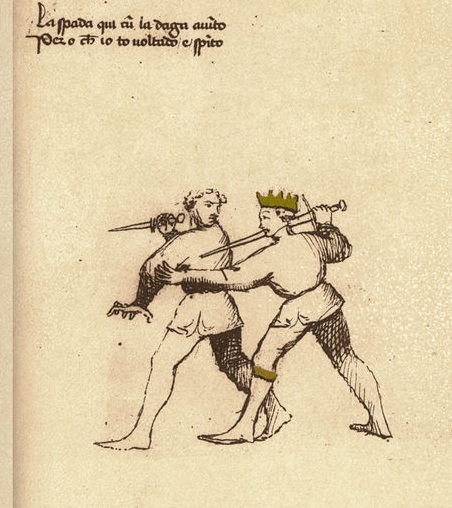 La spada qui cū la daga auito
Per o ch̄ io to uoltado e spīto